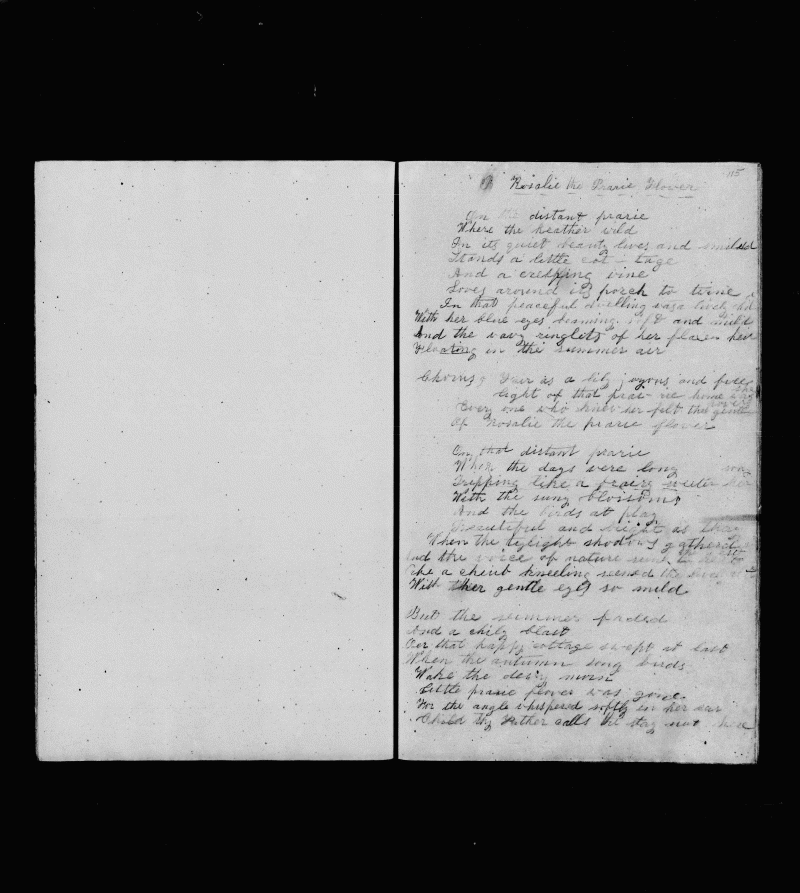 115
Rosalie the Prarie Flower
On the distant prarie
Where the heather wild
In its quiet beauty lives and smiled
Stands a little cot - tage
And a creepping vine
Loves around its porch to twine
In that peaceful dwelling was a
With her blue eyes beaming and mild
And the wavy ringlets of her flaxen
Floating in the summer air
Chorus Fair as a lily joyous and free
light of that prai- rie home was she
Every one who knew her felt the gentle power
Of Rosalie the prarie flower
On that distant prarie
When the days were long
Tripping like a
With the sung blossoms
And the birds at play
Beautiful and bright as they
When the twlight shadows gathered
and the voice of nature sunk to
like a cherub kneeling seemed the
With her gentle eyes so mild
But the summer faded
And a chily blast
Oer that happy cottage swept at last
When the autumn song birds
Wake the dewy morn
Little prarie flower was gone
For the angle whispered softly in her ear
Child thy Father calls the stay not here